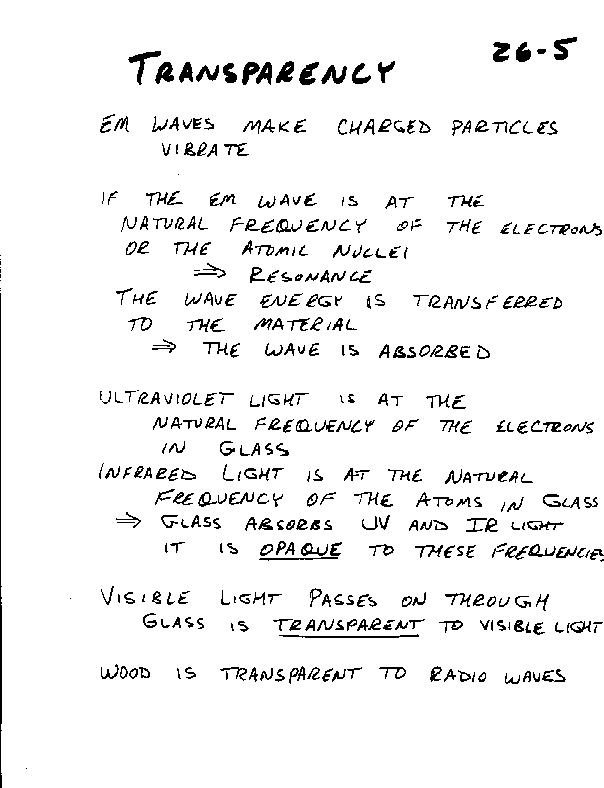 26-5
TRANSPARENCY
EM WAVES MAKE CHARGED PARTICLES
VIBRATE
IF THE EM WAVE IS AT THE
NATURAL FREQUENCY OF THE ELECTRONS
OR THE ATOMIC NUCLEI
⇒ RESONANCE
THE WAVE ENERGY IS TRANSFERRED
TO THE MATERIAL
⇒ THE WAVE IS ABSORBED
ULTRAVIOLET LIGHT IS AT THE
NATURAL FREQUENCY OF THE ELECTRONS
IN GLASS
INFRARED LIGHT IS AT THE NATURAL
FREQUENCY OF THE ATOMS IN GLASS
⇒ GLASS ABSORBS UV AND IR LIGHT
IT IS OPAQUE TO THESE FREQUENCIES
VISIBLE LIGHT PASSES ON THROUGH
GLASS IS TRANSPARENT TO VISIBLE LIGHT
WOOD IS TRANSPARENT TO RADIO WAVES